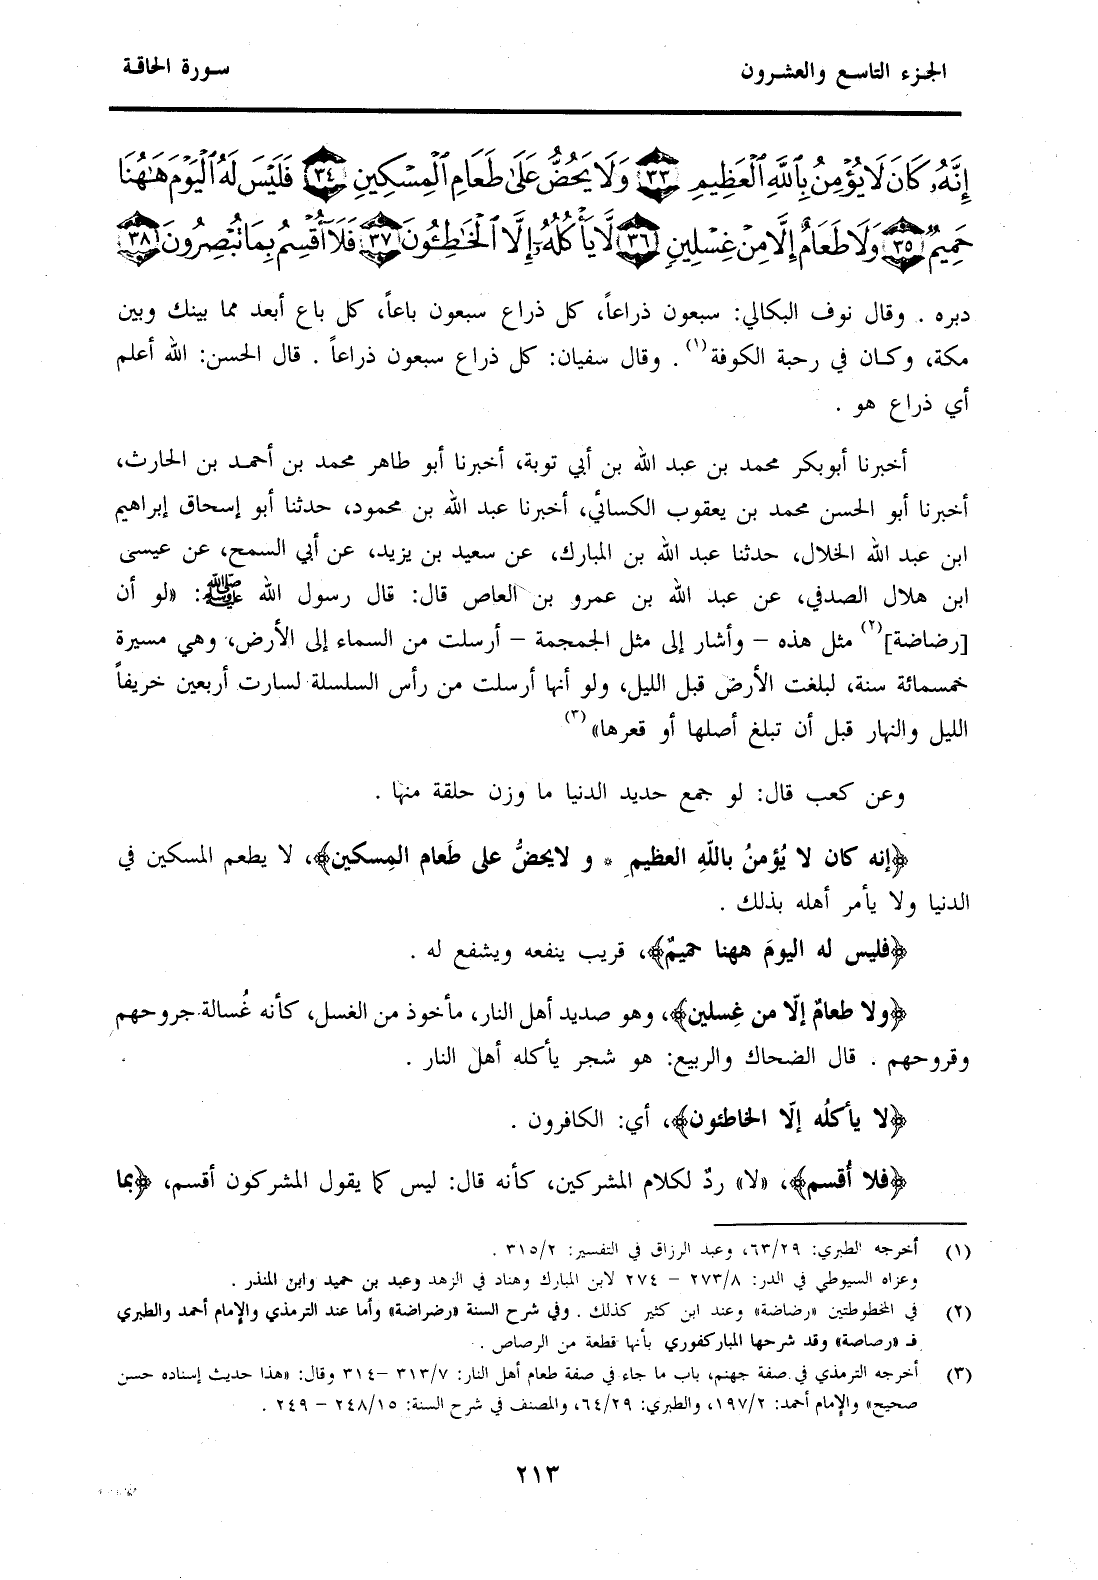 الجزء التاسع والعشرون
سورة الحاقة
إِنَّهُۥ كَانَ لَا يُؤْمِنُ بِٱللَّهِ ٱلْعَظِيمِ ٣٣ وَلَا يَحُضُّ عَلَىٰ طَعَامِ ٱلْمِسْكِينِ ٣٤ فَلَيْسَ لَهُ ٱلْيَوْمَ هَـٰهُنَا
حَمِيمٌ ٣٥ وَلَا طَعَامٌ إِلَّا مِنْ غِسْلِينٍ ٣٦ لَّا يَأْكُلُهُۥٓ إِلَّا ٱلْخَـٰطِـُٔونَ ٣٧ فَلَآ أُقْسِمُ بِمَا تُبْصِرُونَ ٣٨
دبره . وقال نوف البكالي: سبعون ذراعاً، كل ذراع سبعون باعاً، كل باع أبعد مما بينك وبين
مكة، وكان في رحبة الكوفة(١) . وقال سفيان: كل ذراع سبعون ذراعاً . قال الحسن: الله أعلم
أي ذراع هو .
أخبرنا أبوبكر محمد بن عبد الله بن أبي توبة، أخبرنا أبو طاهر محمد بن أحمد بن الحارث،
أخبرنا أبو الحسن محمد بن يعقوب الكسائي، أخبرنا عبد الله بن محمود، حدثنا أبو إسحاق إبراهيم
ابن عبد الله الخلال، حدثنا عبد الله بن المبارك، عن سعيد بن يزيد، عن أبي السمح، عن عيسى
ابن هلال الصدفي، عن عبد الله بن عمرو بن العاص قال: قال رسول الله ﷺ: «لو أن
[رضاضة](٢) مثل هذه – وأشار إلى مثل الجمجمة – أرسلت من السماء إلى الأرض، وهي مسيرة
خمسمائة سنة، لبلغت الأرض قبل الليل، ولو أنها أرسلت من رأس السلسلة لسارت أربعين خريفاً
الليل والنهار قبل أن تبلغ أصلها أو قعرها»(٣)
وعن كعب قال: لو جمع حديد الدنيا ما وزن حلقة منها .
﴿إنه كان لا يُؤمنُ باللهِ العظيمِ * و لايحضُّ على طَعام المِسكين﴾، لا يطعم المسكين في
الدنيا ولا يأمر أهله بذلك .
﴿فليس له اليومَ ههنا حميمٌ﴾، قريب ينفعه ويشفع له .
﴿ولا طعامٌ إلّا من غِسلين﴾، وهو صديد أهل النار، مأخوذ من الغسل، كأنه غُسالة جروحهم
وقروحهم . قال الضحاك والربيع: هو شجر يأكله أهل النار .
﴿لا يأكلُه إلّا الخاطئون﴾، أي: الكافرون .
﴿فلا أُقسم﴾، «لا» ردٌ لكلام المشركين، كأنه قال: ليس كما يقول المشركون أقسم، ﴿بما
(١) أخرجه الطبري: ٦٣/٢٩، وعبد الرزاق في التفسير: ٣١٥/٢ .
وعزاه السيوطي في الدر: ٢٧٣/٨ – ٢٧٤ لابن المبارك وهناد في الزهد وعبد بن حميد وابن المنذر .
(٢) في المخطوطتين «رضاضة» وعند ابن كثير كذلك . وفي شرح السنة «رضراضة» وأما عند الترمذي والإمام أحمد والطبري
فـ «رصاصة» وقد شرحها المباركفوري بأنها قطعة من الرصاص .
(٣) أخرجه الترمذي في صفة جهنم، باب ما جاء في صفة طعام أهل النار: ٣١٣/٧ –٣١٤ وقال: «هذا حديث إسناده حسن
صحيح» والإمام أحمد: ١٩٧/٢، والطبري: ٦٤/٢٩، والمصنف في شرح السنة: ٢٤٨/١٥ – ٢٤٩ .
٢١٣